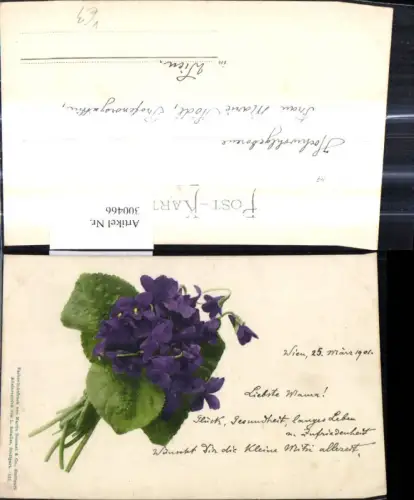 v63
in Wien,
Frau Marie
Hochwohlgeboren
POST-KART
Artikel Nr.
300466
Wien, 25. März 1901.
Liebste Mama!
Glück, Gesundheit, langes Leben
u. Zufriedenheit
Wünscht Dir die Kleine Mitzi allezeit.